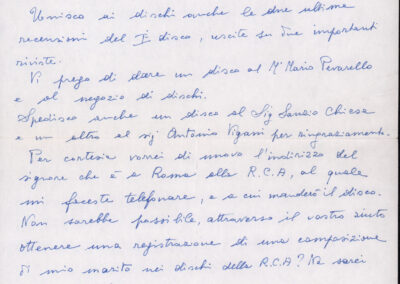 Unisco ai dischi anche le due ultime
recensioni del I disco, uscite su due importanti
riviste.
Vi prego di dare un disco al M° Mario Pevarello
e al negozio di dischi.
Spedisco anche un disco al Sig Sanzio Chiesa
e un altro al sig Antonio Vigani per ringraziamento.
Per cortesia vorrei di nuovo l'indirizzo del
signore che è a Roma alla R.C.A, al quale
mi faceste telefonare, e a cui manderò il disco.
Non sarebbe possibile, attraverso il vostro aiuto
ottenere una registrazione di una composizione
di mio marito nei dischi della R.C.A? Ne sarei